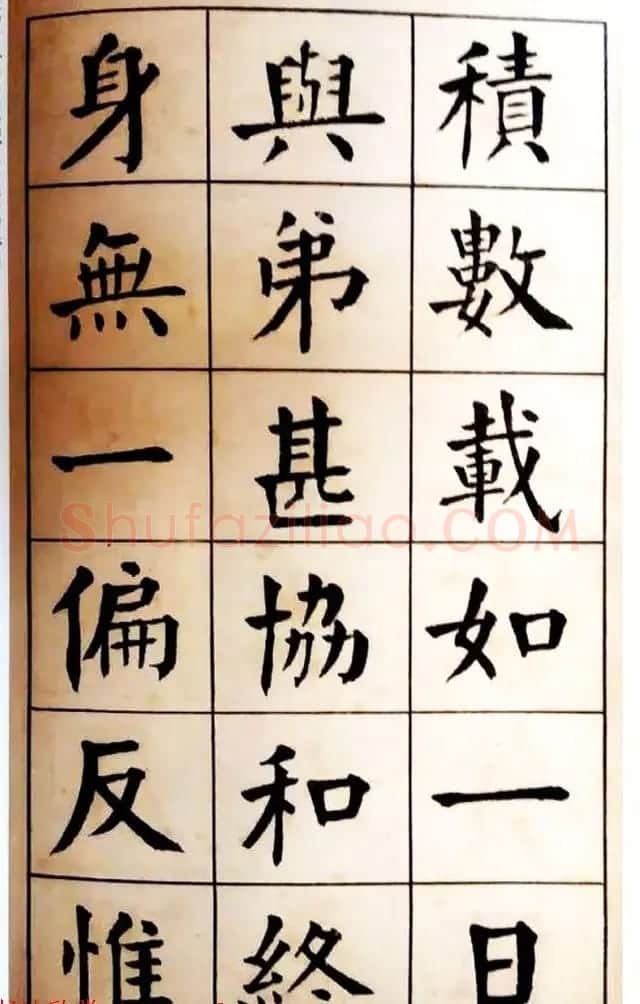 積數載如一日
與弟甚協和終
身無一偏反惟
Shufaziliao.COM